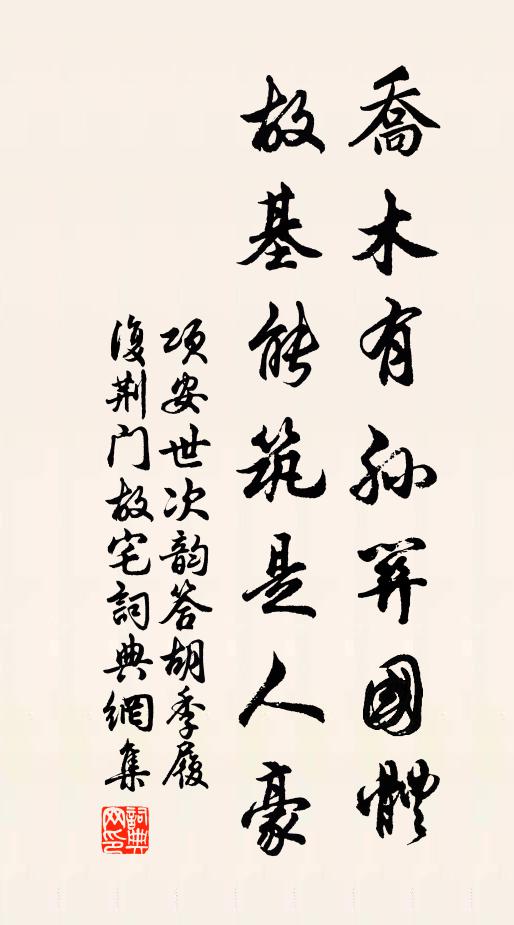 喬木有孫關國體
故基能筑是人豪
項安世次韵答胡季履
復荆门故宅詞典網集
詞典网印